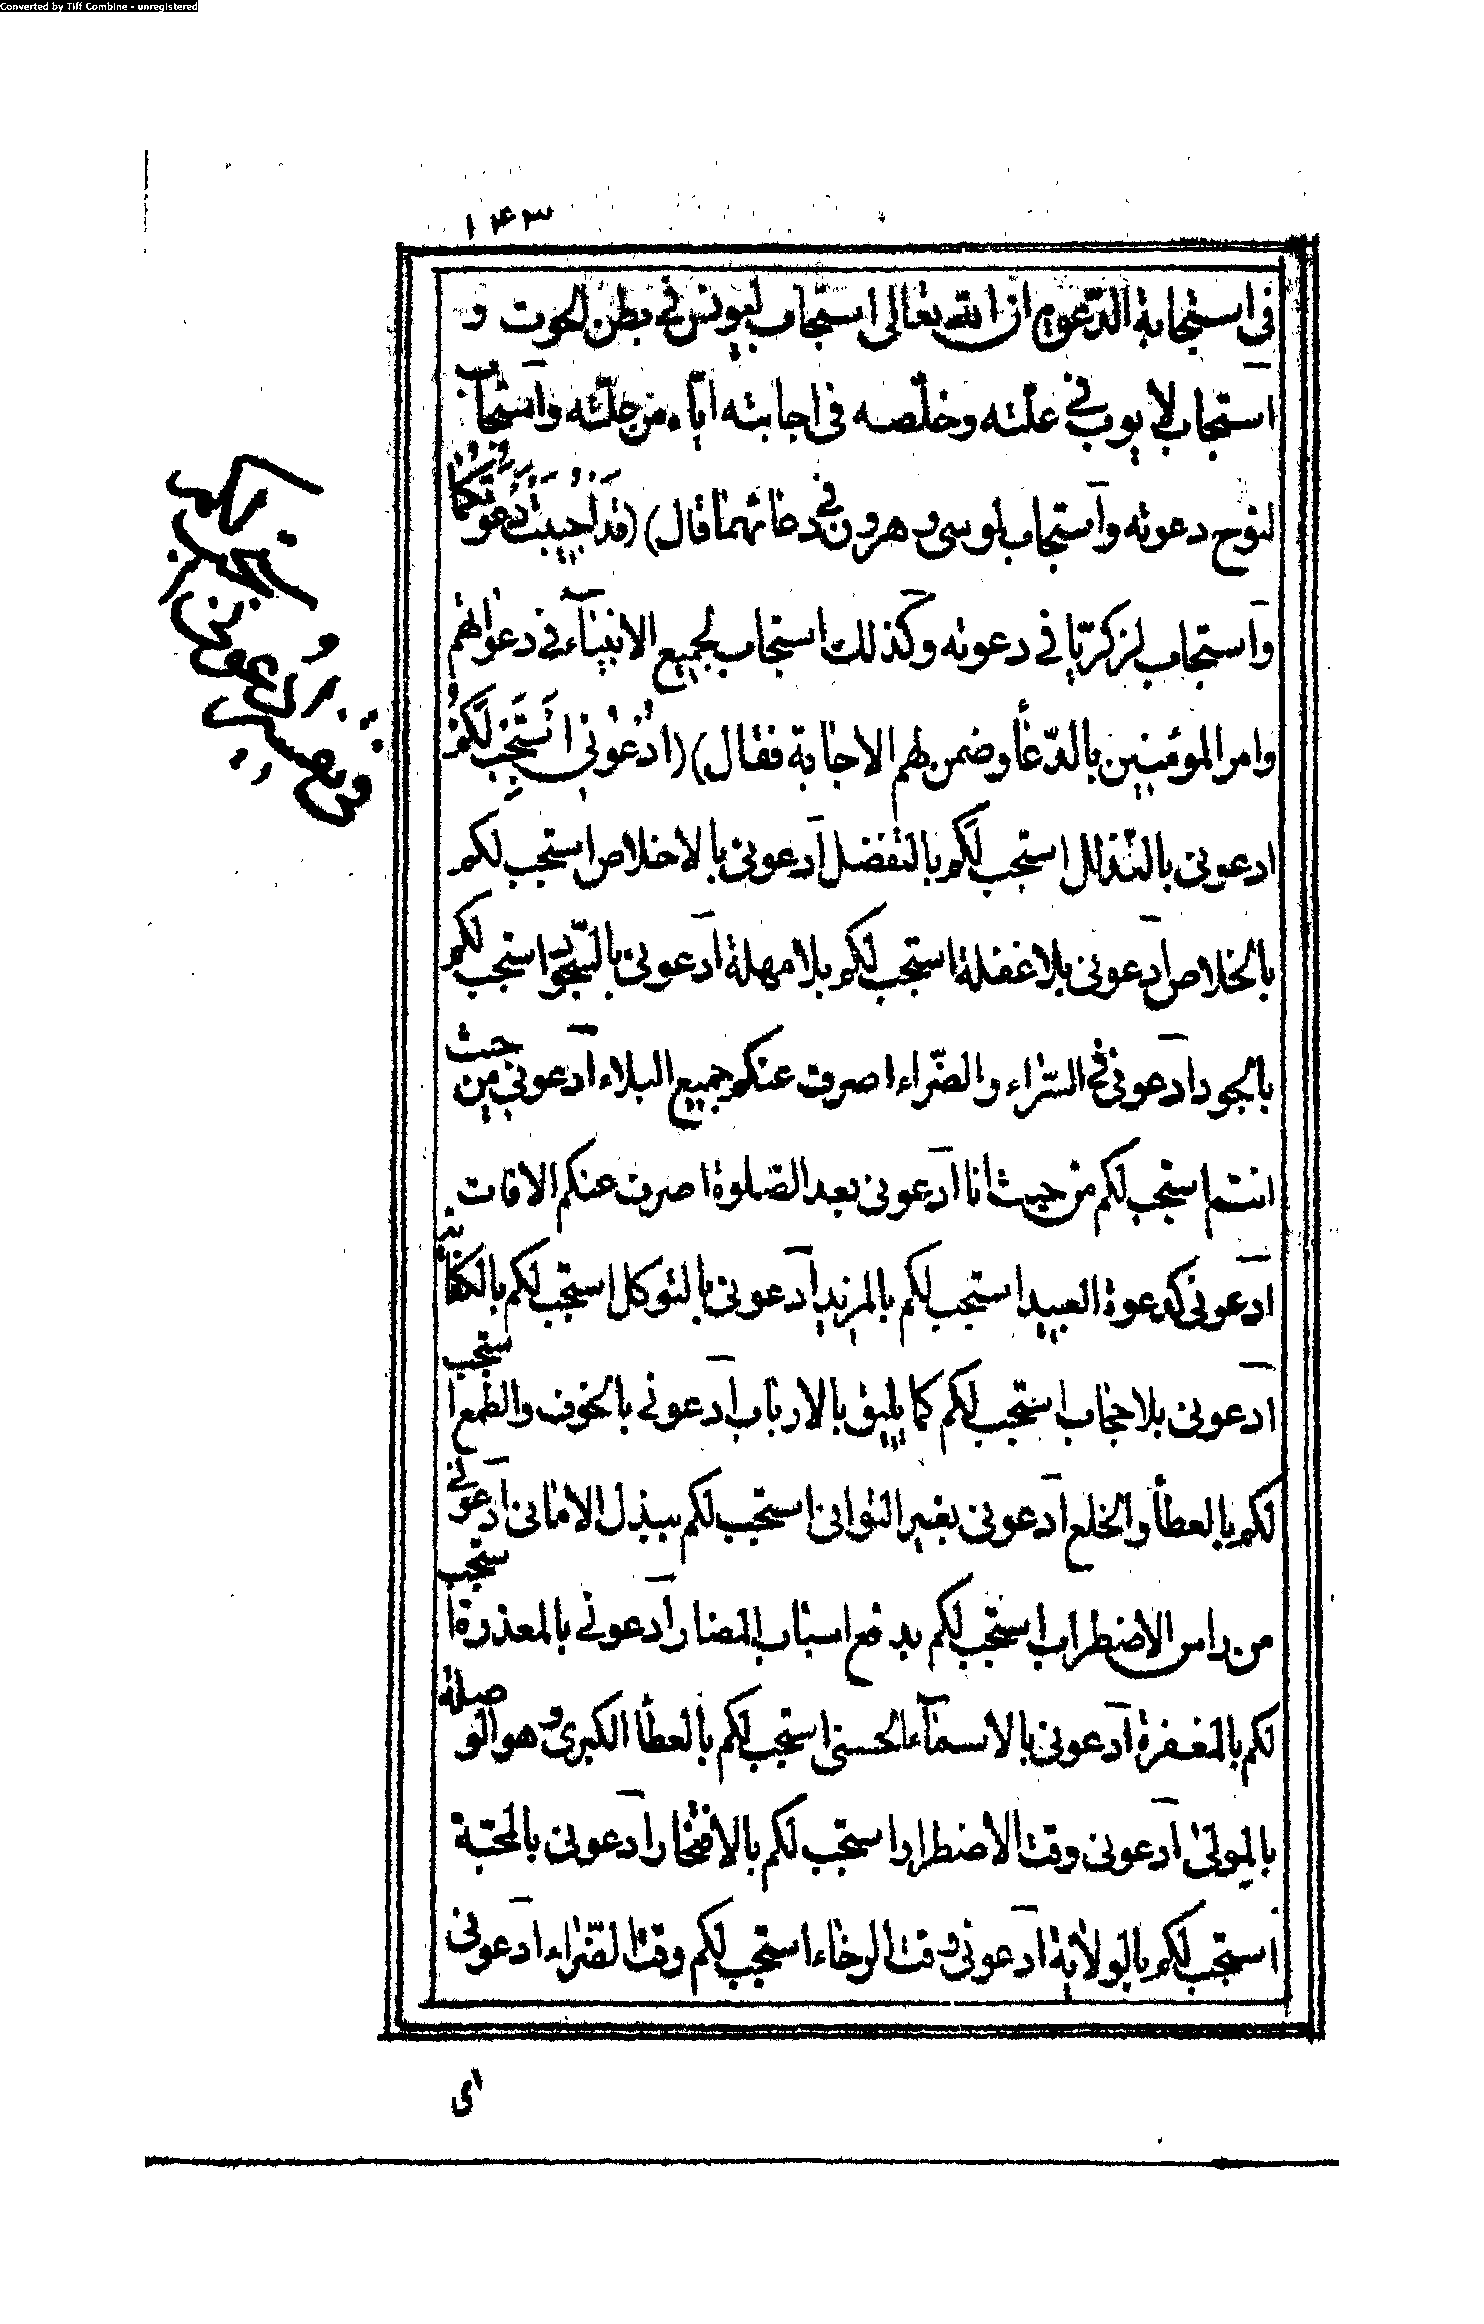 Converted by Tiff Combine - unregistered
١٤٣
فى استجابة الدعوة ان الله تعالى استجاب ليونس فى بطن الحوت و
استجاب لايوب فى علته وخلّصه فى اجابته ايّاه من علّته واستجاب
لنوح دعوته واستجاب لموسى وهرون فى دعائهما قال (قَدْ اُجِيبَتْ دَعْوَتُكُمَا)
واستجاب لزكريّا فى دعوته وكذلك استجاب لجميع الانبيآء فى دعواتهم
وامر المؤمنين بالدّعأ وضمن لهم الاجابة فقال (اُدْعُونِى اَسْتَجِبْ لَكُمْ)
ادعونى بالتذلل استجب لكم بالتفضل ادعونى بالاخلاص استجب لكم
بالخلاص ادعونى بلا غفلة استجب لكم بلا مهلة ادعونى بالسّجود استجب لكم
بالجود ادعونى فى السّراء والضّراء اصرف عنكم جميع البلاء ادعونى من حيث
انتم استجب لكم من حيث انا ادعونى بعد الصّلوة اصرف عنكم الافات
ادعونى كدعوة العبيد استجب لكم بالمزيد ادعونى بالتوكل استجب لكم بالكفاية
ادعونى بلا حجاب استجب لكم كما يليق بالارباب ادعونى بالخوف والطمع استجب
لكم بالعطأ والخلع ادعونى بغير التوانى استجب لكم ببذل الامانى ادعونى
من راس الاضطراب استجب لكم بدفع اسباب المضار ادعونى بالمعذرة استجب
لكم بالمغفرة ادعونى بالاسمآء الحسنى استجب لكم بالعطأ الكبرى وهو الوصلة
بالمولى ادعونى وقت الاضطرار استجب لكم بالافتخار ادعونى بالمحبّة
استجب لكم بالولاية ادعونى وقت الرخاء استجب لكم وقت الضّراء ادعونى
اى